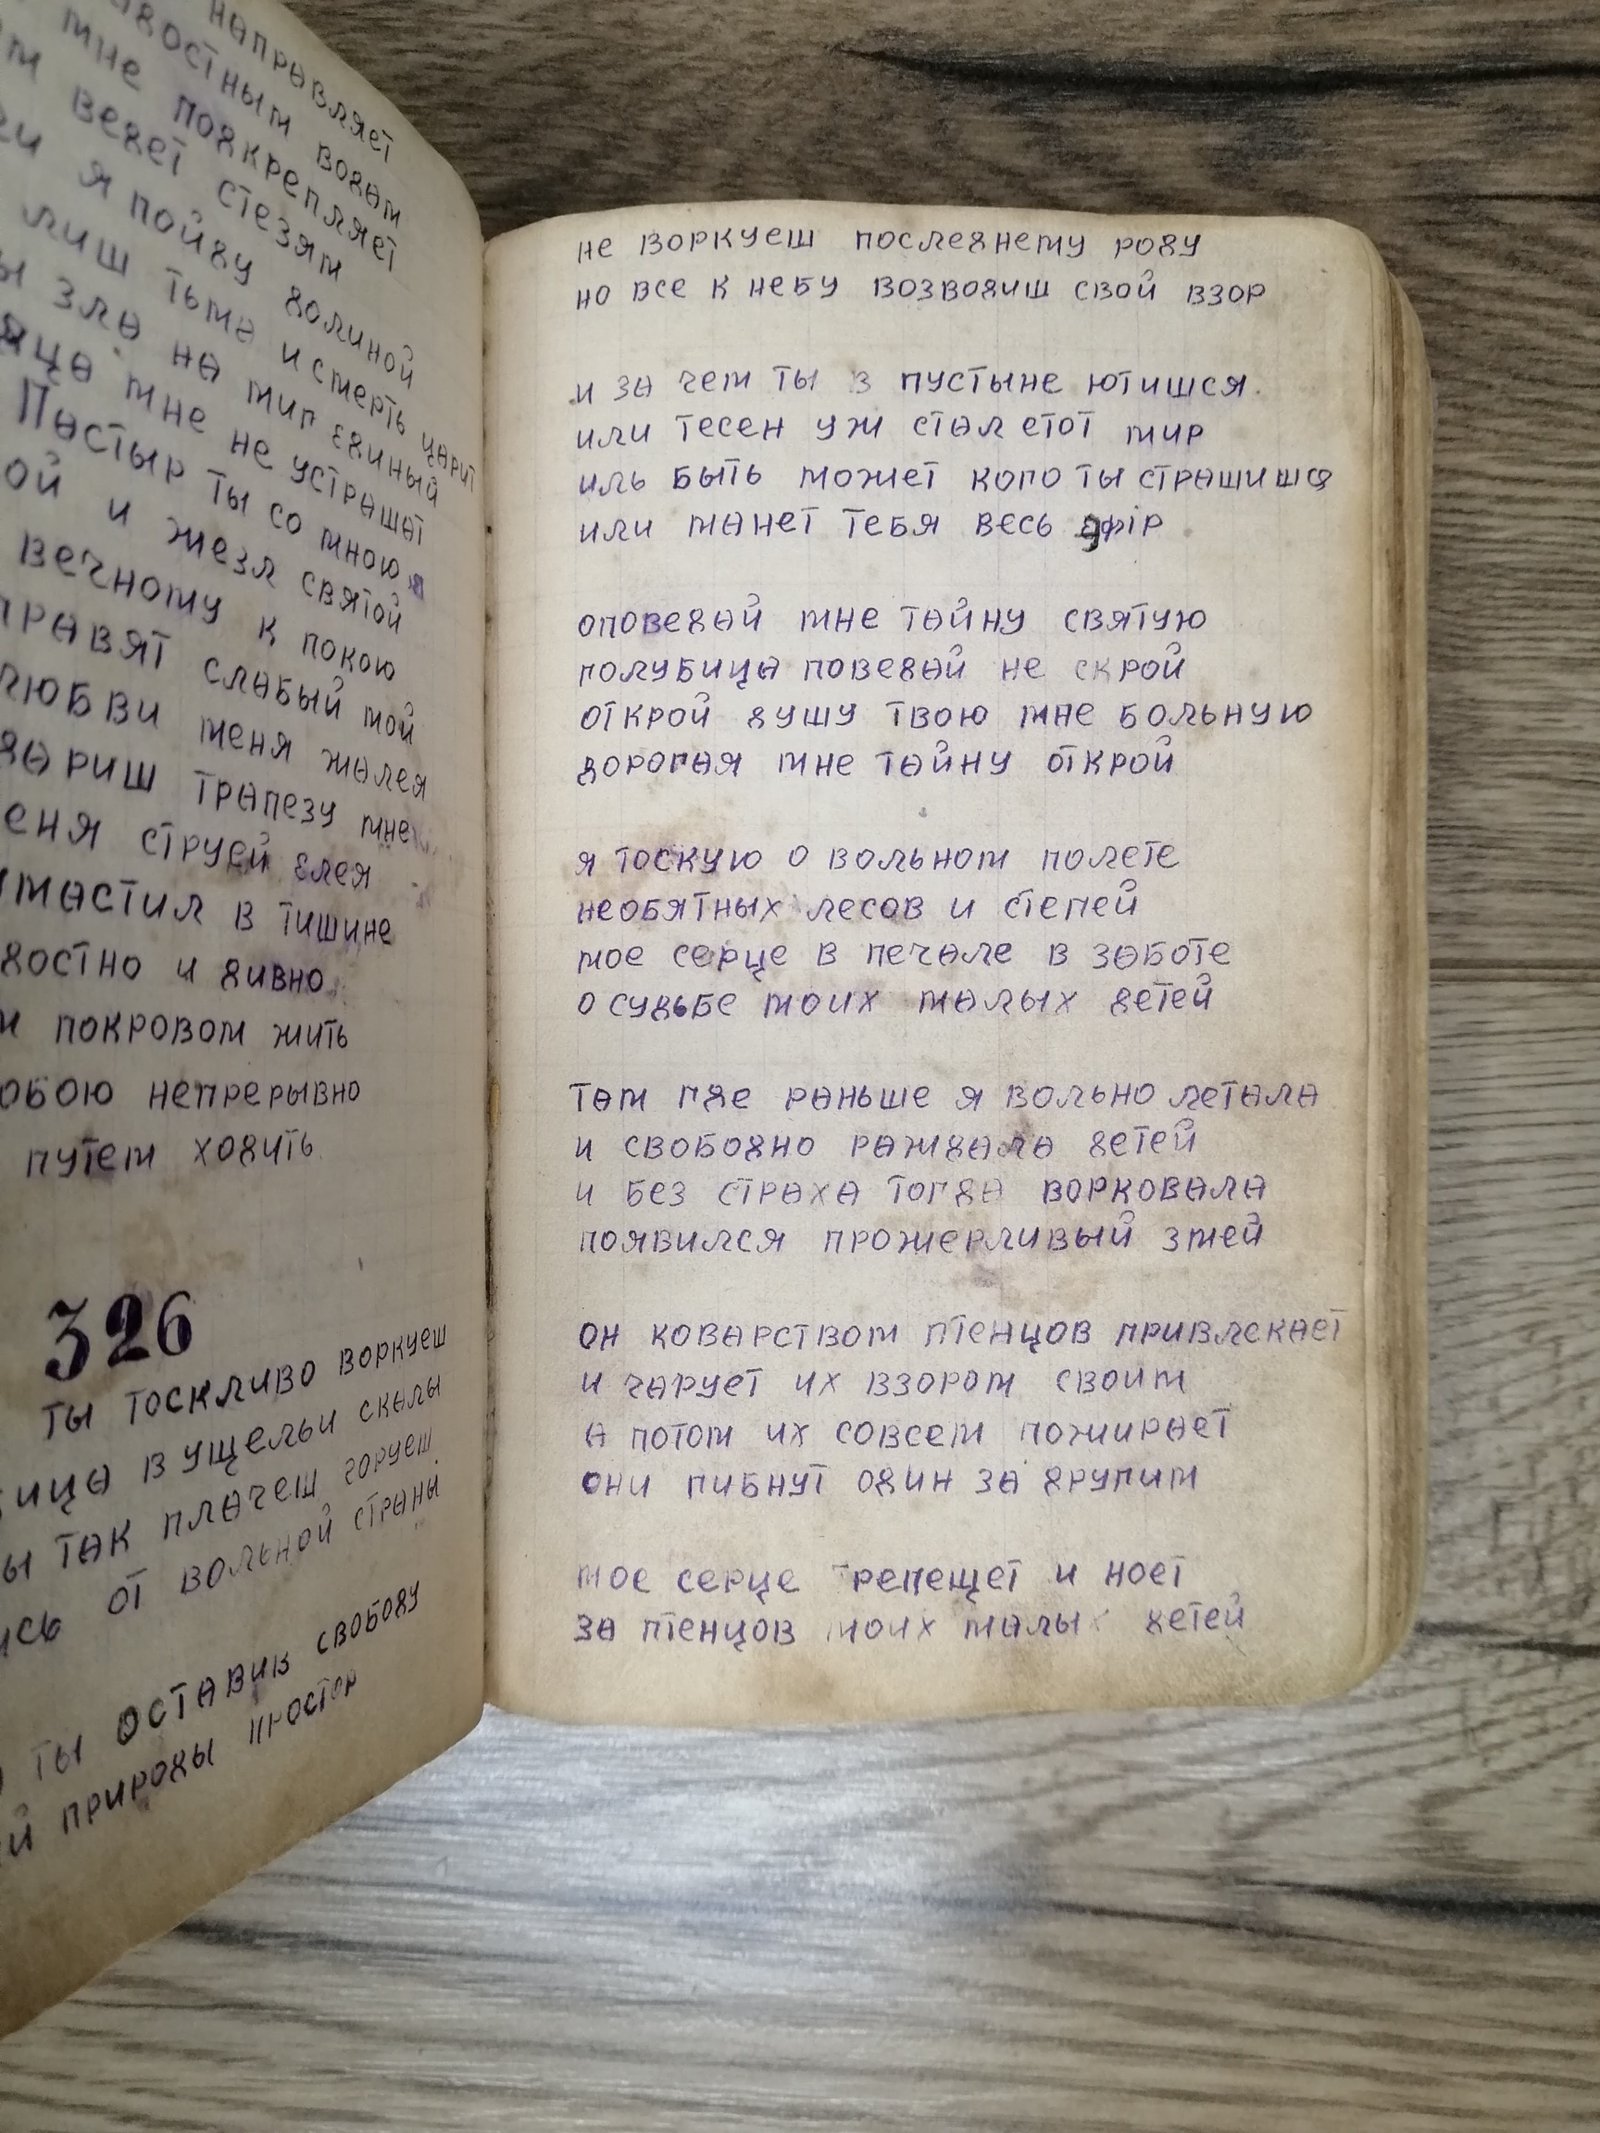 направляет
водам
мне подкрепляет
ведет стезям
я пойду долиной
лиш тьма и смерть царит
зла на миг единый
мне не устрашат
Пастыр ты со мною
и жезл святой
вечному к покою
слабый мой
любви меня жалея
трапезу мне
струей елея
в тишине
и дивно
покровом жить
непрерывно
путем ходить
326
ты тоскливо воркуеш
в ущельи скалы
так плачеш горуеш
от вольной страны
ты оставив свободу
природы простор
не воркуеш последнему роду
но все к небу возводиш свой взор
и за чем ты в пустыне ютишся
или тесен уж стал етот мир
иль быть может кого ты страшишся
или манет тебя весь эфір
оповедай мне тайну святую
голубица поведай не скрой
открой душу твою мне больную
дорогая мне тайну открой
я тоскую о вольном полете
необятных лесов и степей
мое серце в печале в заботе
о судьбе моих малых детей
там где раньше я вольно летала
и свободно раждала детей
и без страха тогда ворковала
появился прожерливый змей
он коварством птенцов привлекает
и чарует их взором своим
а потом их совсем пожирает
они гибнут один за другим
мое серце трепещет и ноет
за птенцов моих малых детей